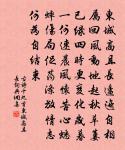 東城高且長逶迤自相
屬回風動地起秋草萋
已綠四時更變化歲暮
一何速晨風懷苦心蟋
蟀傷局促蕩滌放情志
何為自結束
古詩十九首東城高且
長